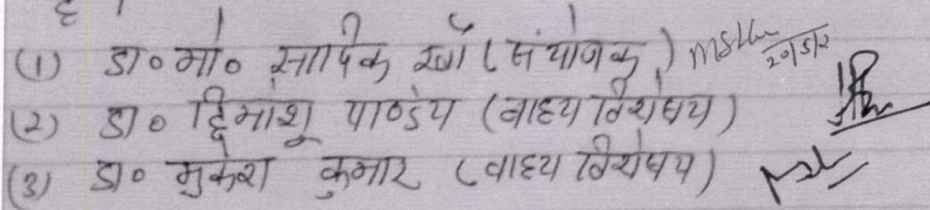 (1) डा० मो० सादिक खाँ (संयोजक)
(2) डा० हिमांशू पाण्डेय (वाह्य विशेषय)
(3) डा० मुकेश कुमार (वाह्य विशेषय)